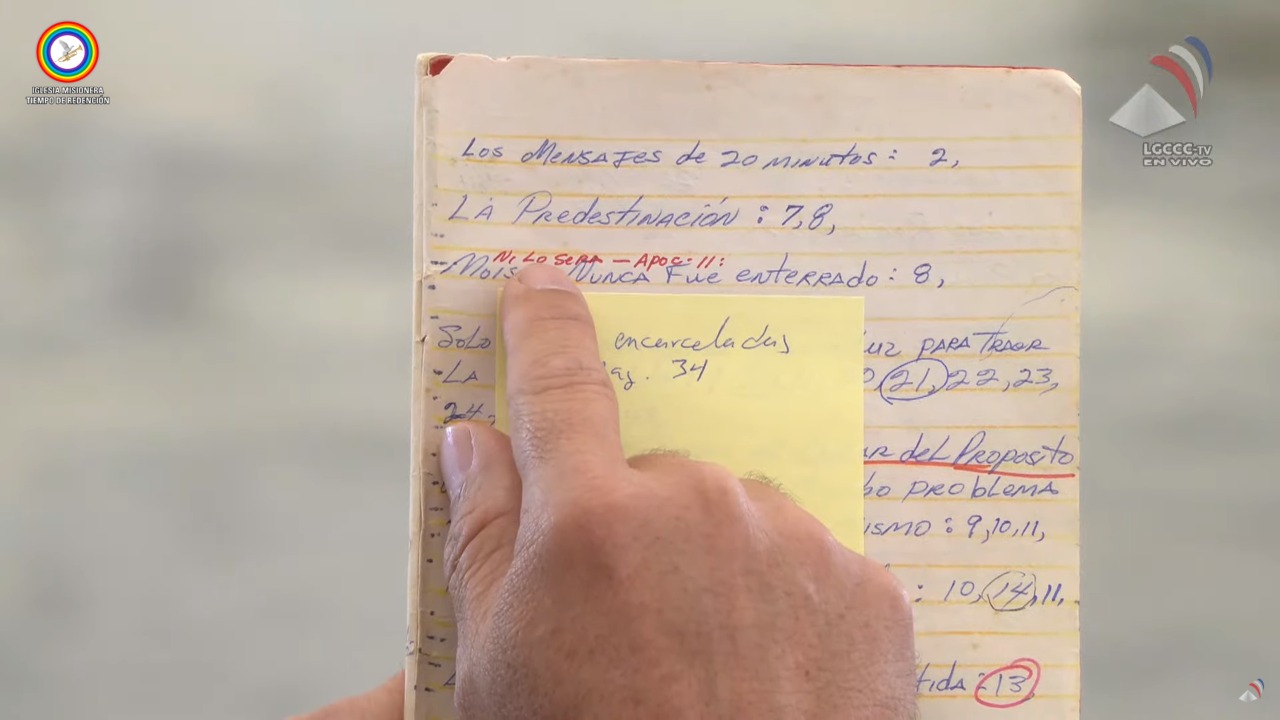 IGLESIA MISIONERA
TIEMPO DE REDENCIÓN
LGCCC-TV
EN VIVO
Los Mensajes de 20 minutos: 2,
LA Predestinación: 7,8,
Ni Lo sera — Apoc. 11:
Nunca Fue enterrado: 8,
Solo
encarceladas
Luz PARA TRAER
LA
34
21, 22, 23,
24,
del Proposito
problema
ismo: 9,10,11,
: 10, 14, 11,
tida: 13